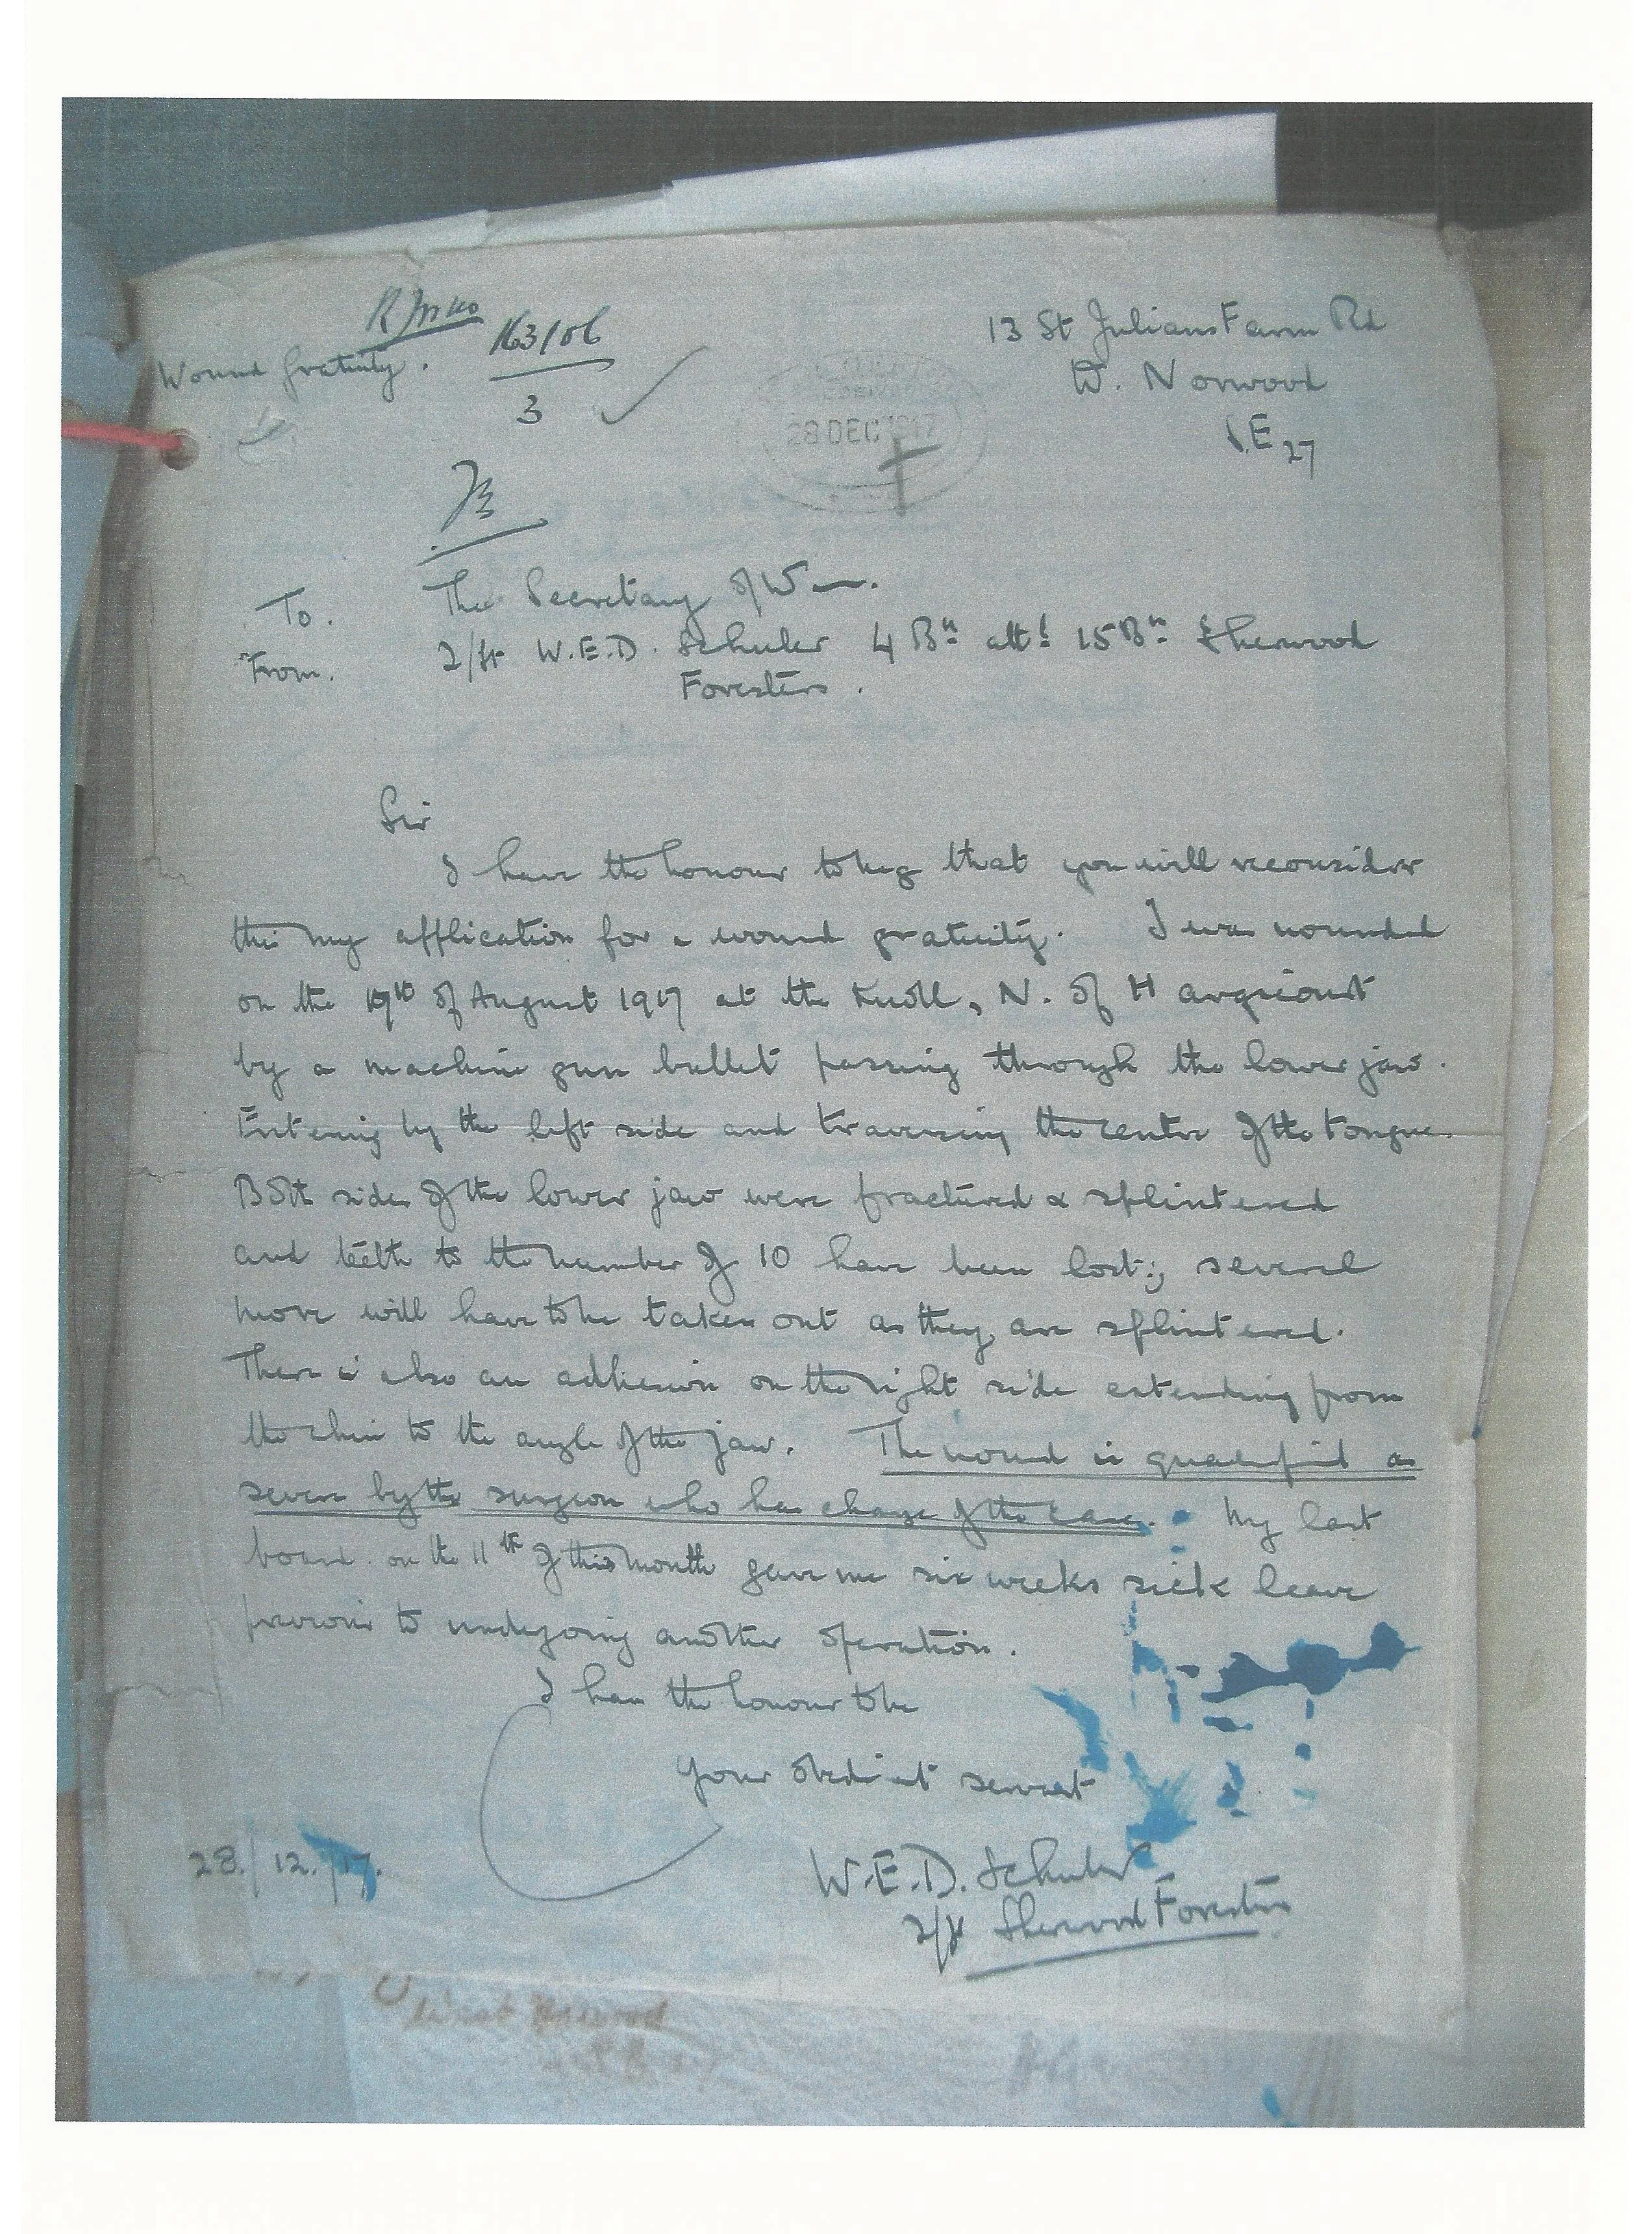 Wound Gratuity.
163/06
3
13 St Julians Farm Rd
W. Norwood
S.E 27
28 DEC 1917
To. The Secretary of War.
From. 2/Lt W.E.D. Schuler 4 Bn attd 15 Bn Sherwood
Foresters.
Sir
I have the honour to beg that you will reconsider
this my application for a wound gratuity. I was wounded
on the 19th of August 1917 at the Knoll, N. of Hargicourt
by a machine gun bullet passing through the lower jaw.
Entering by the left side and traversing the centre of the tongue.
Both sides of the lower jaw were fractured & splintered
and teeth to the number of 10 have been lost; several
more will have to be taken out as they are splintered.
There is also an adhesion on the right side extending from
the chin to the angle of the jaw. The wound is qualified as
severe by the surgeon who has charge of the case. My last
board on the 11th of this month gave me six weeks sick leave
previous to undergoing another operation.
I have the honour to be
Your obedient servant
28/12/17.
W.E.D. Schuler
2/Lt Sherwood Foresters
West Norwood